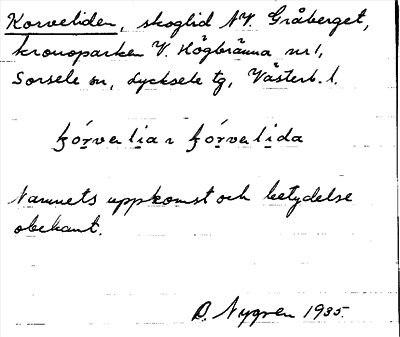 Korveliden, skoglid NV. Gråberget,
kronoparken V. Högbränna nr 1,
Sorsele sn, Lycksele tg, Västerb. l.
kórvelian kórvelida
Namnets uppkomst och betydelse
obekant.
O. Nygren 1935.